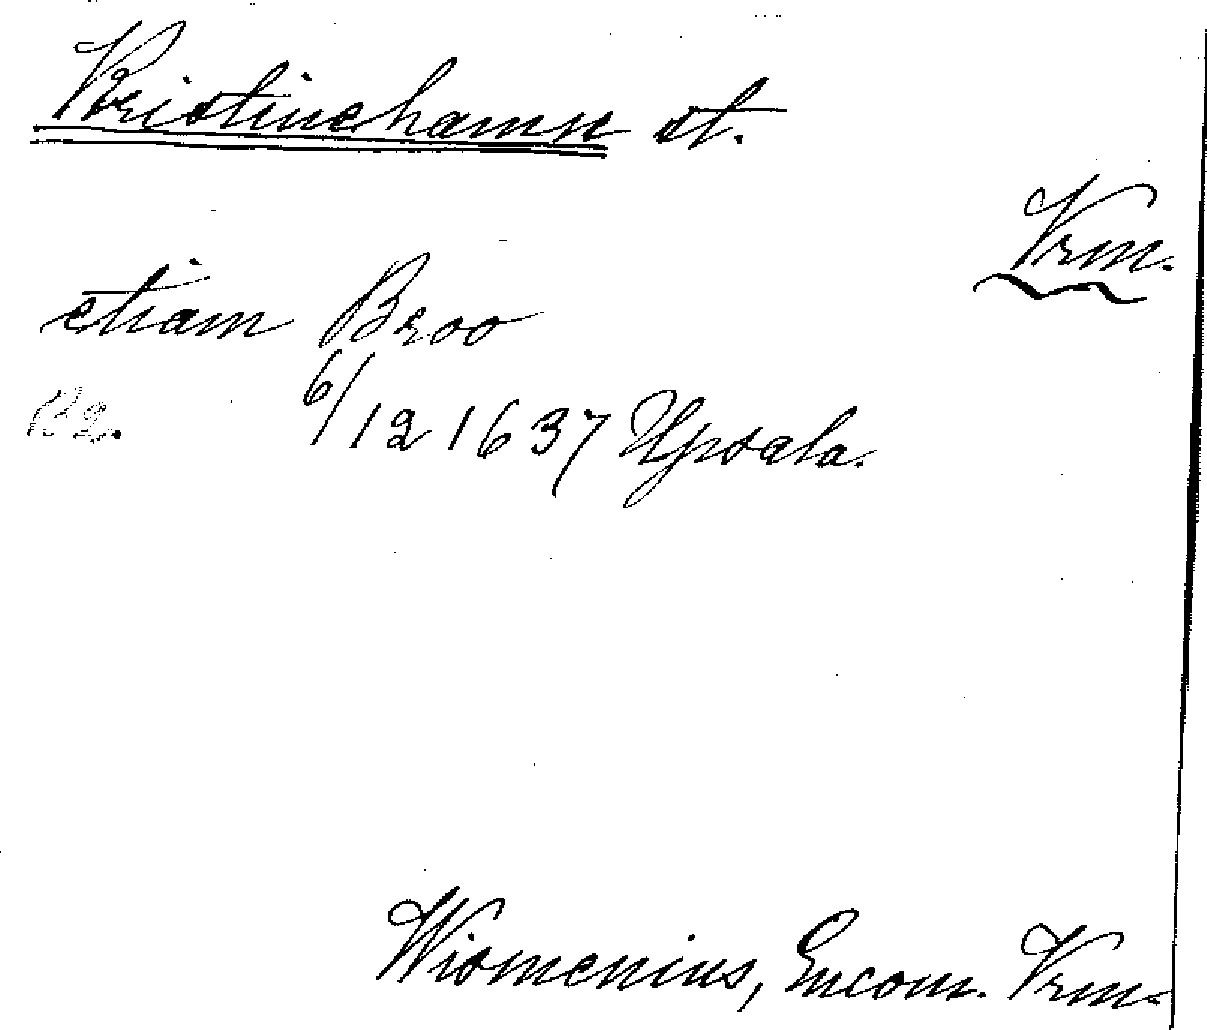 Kristinehamn st.
Vrm.
etiam Broo
B2. 6/12 1637 Upsala.
Wismenius, Encom. Vrm.